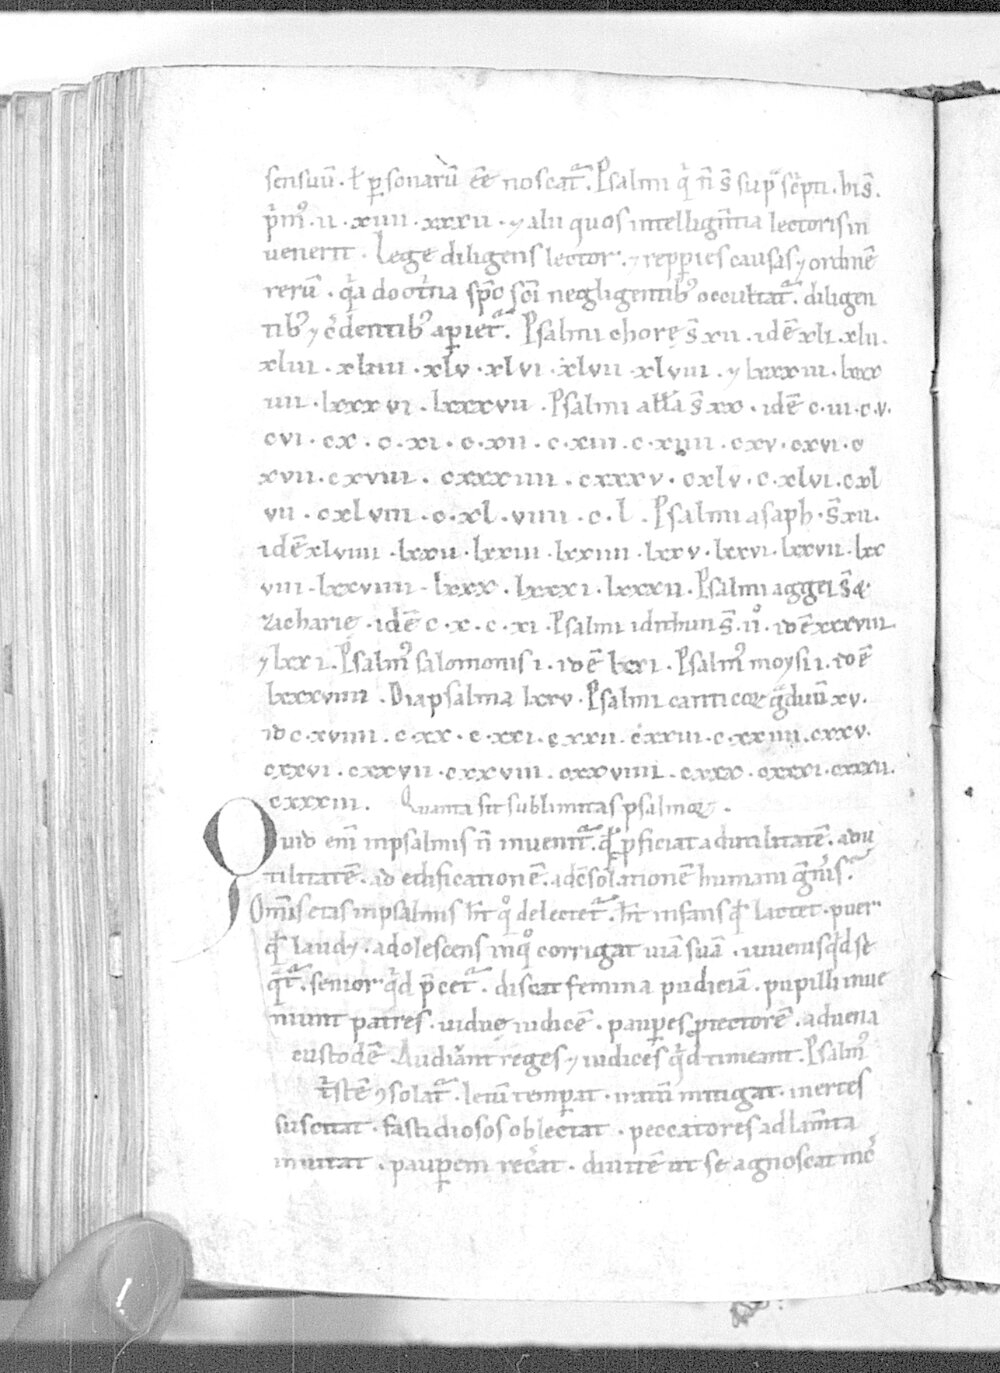 sensuũ · ł ꝑsonarũ ẽe noscat᷑ . Psalmi q̇ ñ s̃ sup̃ sc̃pti . hi s̃ .
p̃mꝰ . ii . xiiii . xxxii . ⁊ alii quos intelligñtia lectoris in
uenerit . Lege diligens lector . ⁊ repꝑies causas ⁊ ordinẽ
rerũ . q̃a doct̃na sp̃c sc̃i negligentibꝰ occultat᷑ . diligen
tibꝰ ⁊ c̃dentibꝰ aꝑiet᷑ . Psalmi chorę s̃ xii . idẽ xli . xlii .
xliii . xliiii . xlv . xlvi . xlvii . xlviii . ⁊ lxxxiii . lxxx
iiii . lxxxvi . lxxxvii . Psalmi alła s̃ xx . idẽ c . iii . c . v .
cvi . cx . c . xi . c . xii . c . xiii . c . xiiii . cxv . cxvi . c
xvii . cxviii . cxxxiiii . cxxxv . cxlv . c . xlvi . cxl
vii . cxlviii . c . xl . viiii . c . l . Psalmi asaph . s̃ xii .
idẽ xlviiii . lxxii . lxxiii . lxxiiii . lxxv . lxxvi . lxxvii . lxx
viii . lxxviiii . lxxx . lxxxi . lxxxii . Psalmi aggei s̃ &
zacharię . idẽ c . x . c . xi . Psalmi idithun s̃ . iiͦ . idẽ xxxviii .
⁊ lxxi . Psalmꝰ salomonis i . idẽ lxxi . Psalmꝰ moysi i . idẽ
lxxxviiii . Diapsalma lxxv . Psalmi canticoꝝ g̃duũ xv .
id c . xviiii . c . xx . c . xxi . cxxii . cxxiii . c . xxiiii . cxxv .
cxxvi . cxxvii . cxxviii . cxxviiii . cxxx . cxxxi . cxxxii .
cxxxiii . Quanta sit sublimitas psalmoꝝ .
Quid eni᷑ in psalmis ñ inuenit᷑ . qđ ꝓficiat ad utilitatẽ . ad u
tilitatẽ . ad edificationẽ . ad c̃solationẽ humani gñis .
Om̃is etas in psalmis ht̃ qͦ delectet᷑ . ht̃ infans qđ lactet . puer
qđ laudꝫ . adolescens in qͦ corrigat uiã suã . iuuenis qͥd se
q̃t᷑ . senior qͥd p̃cet᷑ . discat femina pudiciã . pupilli inue
niunt patres . uiduę iudicẽ . pauꝑes ꝓtectorẽ . aduena
custodẽ . Audiant reges ⁊ iudices qͥd timeant . Psalmꝰ
t̃stẽ ꝯsolat᷑ . letũ temꝑat . iratũ mitigat . inertes
suscitat . fastidiosos oblectat . peccatores ad lam̃ta
inuitat . pauꝑem rec̃at . diuitẽ ut se agnoscat inc̃